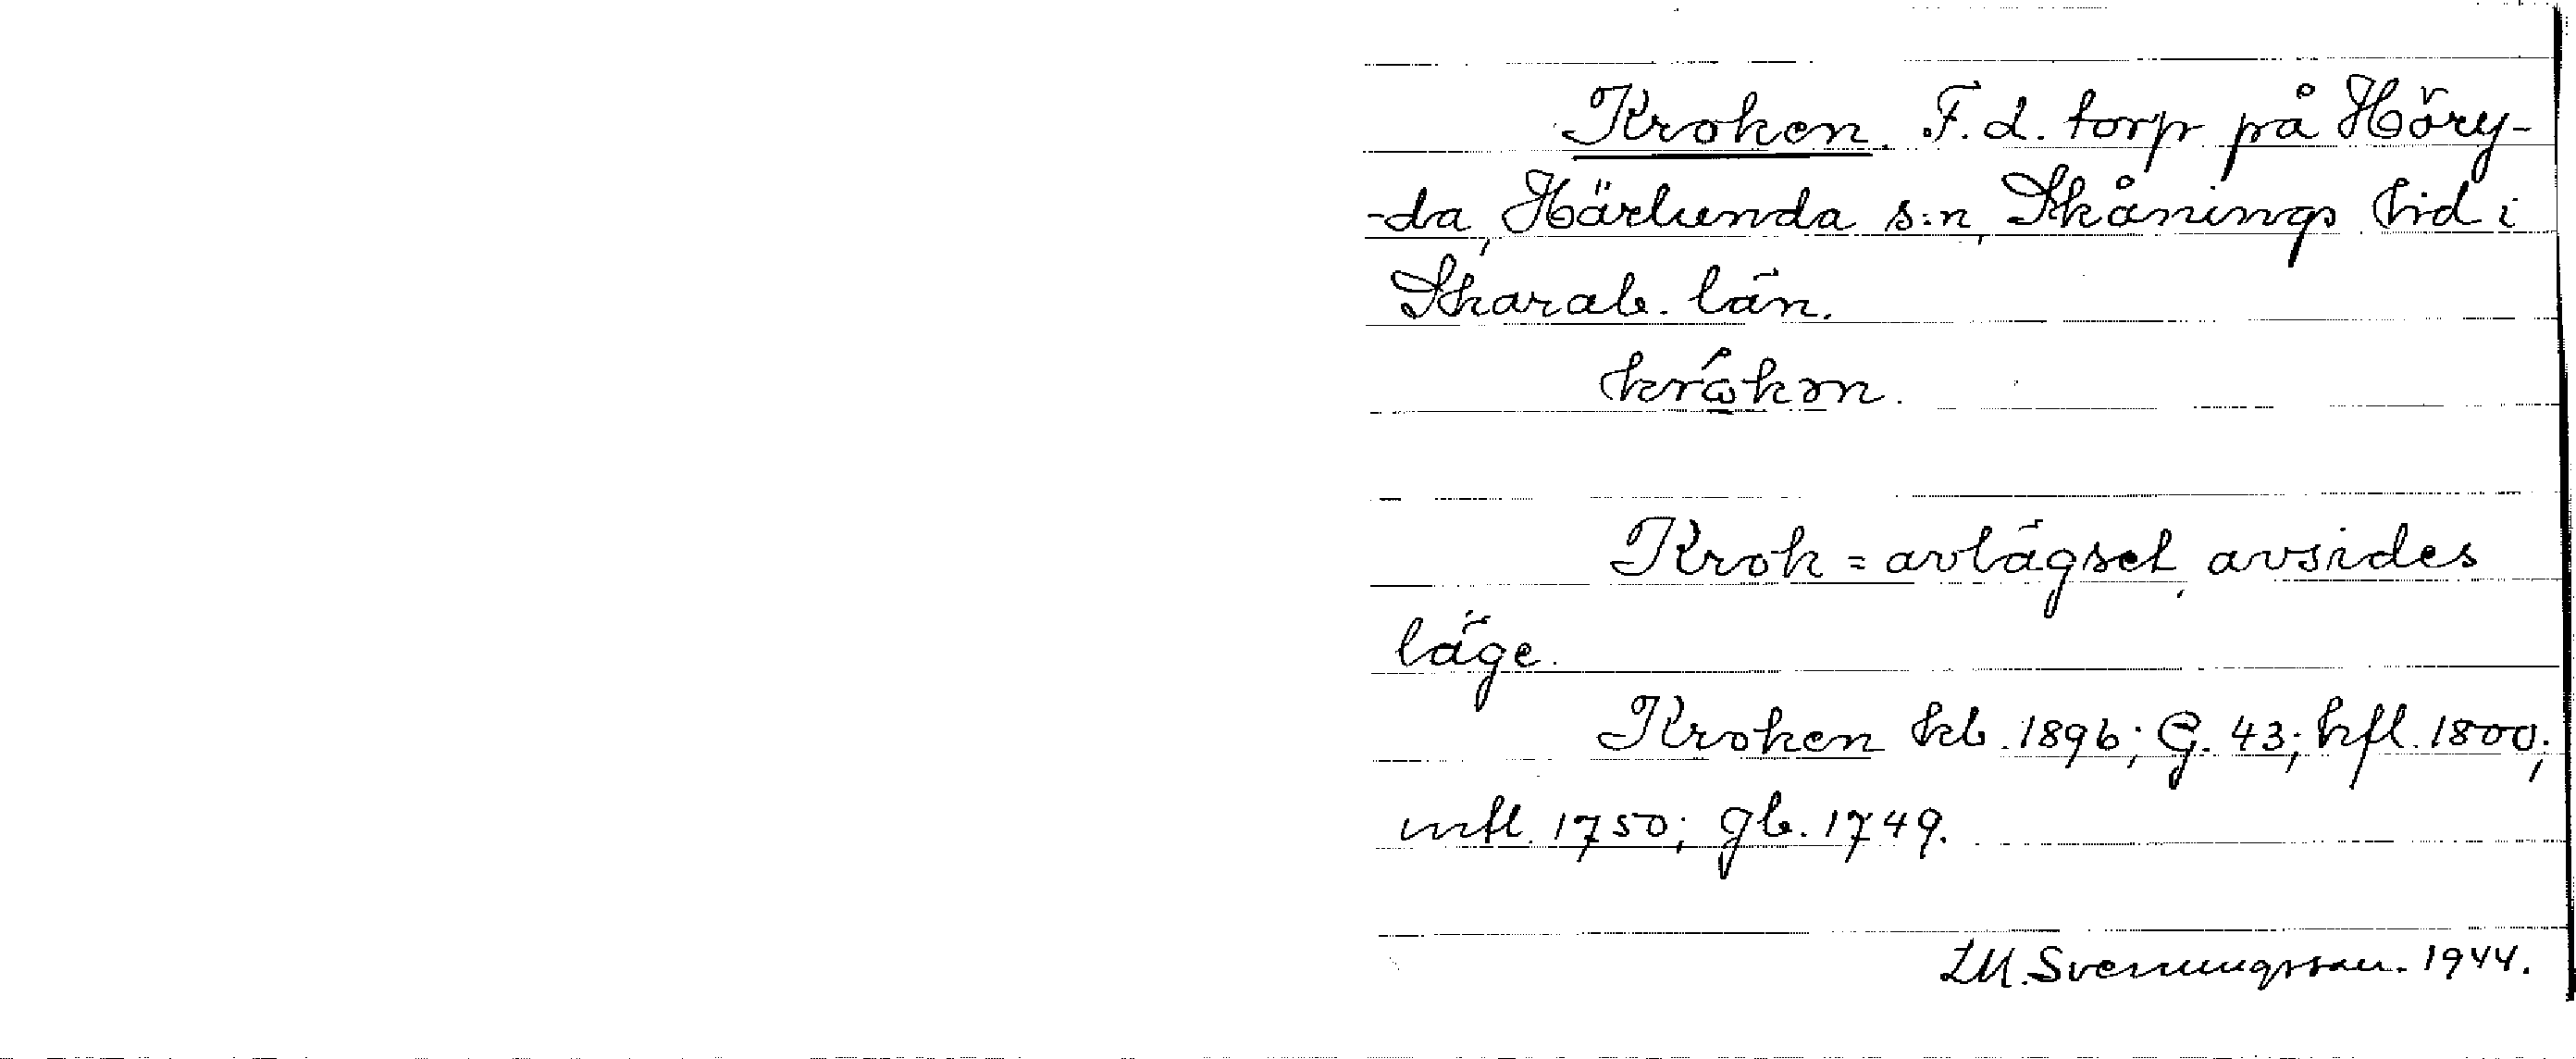 Kroken. F. d. torp på Höry-
-da, Härlunda s:n, Skånings hd i
Skarab. län.
Krok = avlägset, avsides
läge.
Kroken kb. 1896; G. 43; hfl. 1800;
mtl. 1750; gb. 1749.
LM. Svenungsson. 1944.